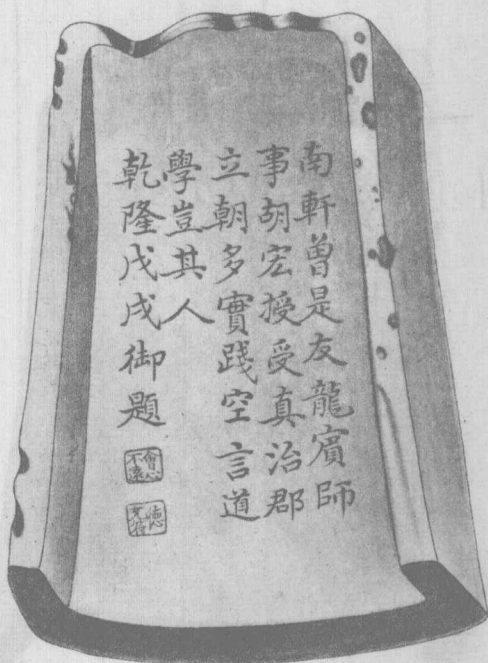 南軒曾是友龍賓師
事胡宏授受真治郡
立朝多實踐空言道
學豈其人
乾隆戊戌御題
會心不遠
德充符